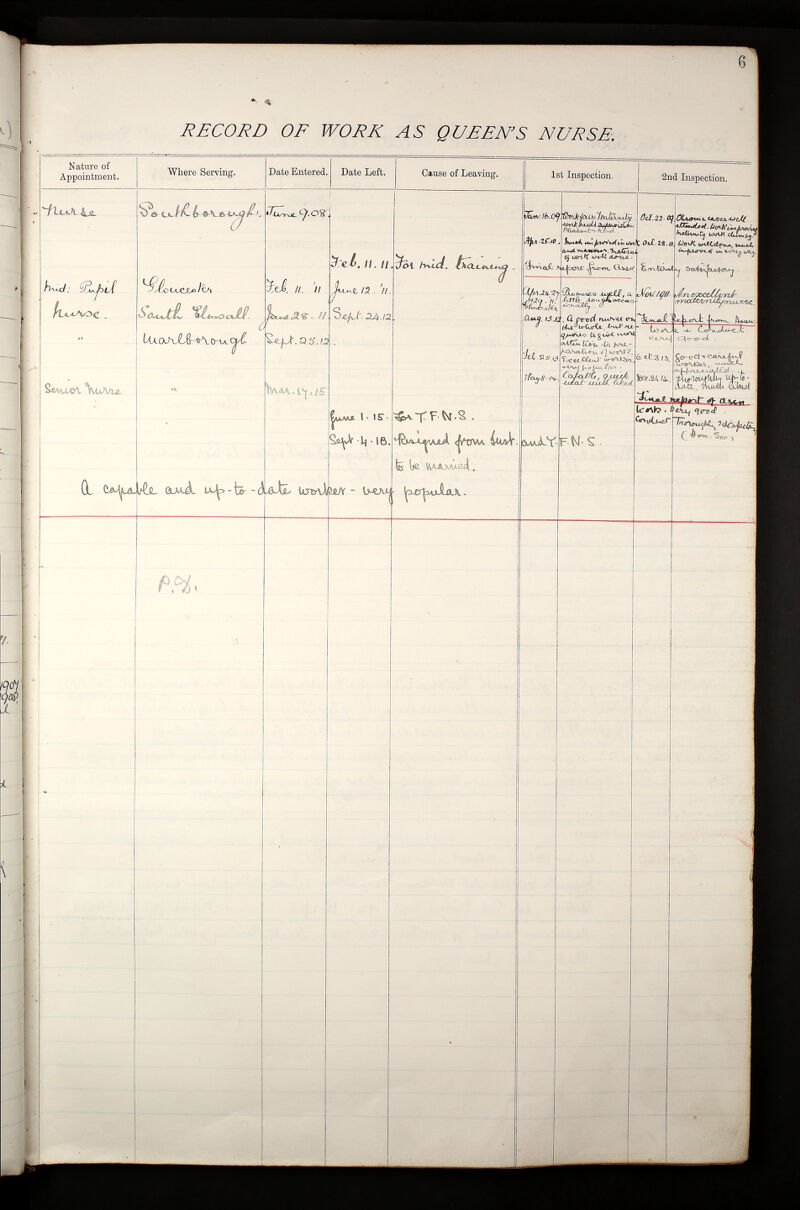 6
RECORD OF WORK AS QUEEN'S NURSE.
Nature of Appointment.
Where Serving.
Date Entered.
Date Left.
Cause of Leaving.
1st Inspection.
2nd Inspection.
Nurse
Southborough.
June 9.08.
Feb. 11. 11.
For Mid. Training.
Jan. 16.09
Work fair.
Oct. 22 09
Chronic cases well
attended. Work improving
Apr. 25.10.
Much improved in work
and manner. Maternity
work well done.
Oct. 28.10.
Work well done, much
improved in every way
Final report from Assn
Entirely satisfactory.
Mid: Pupil
Gloucester
Feb. 11. '11
June 12. '11.
Nurse.
South Elmsall.
June. 28. 11.
Sept. 24.12.
Promises well, a
little rough
Nov. 1911
An excellent
maternity nurse.
"
Marlborough
Sept. 25.12
Aug. 15.12.
A good nurse on
the whole, but re-
quires to give more
attention to pre-
paration of work.
Final Report from Assn:
Work & Conduct
very Good
Feb 25.13
Excellent worker,
very popular.
Oct. 3 13.
Good & careful
worker, much
appreciated.
Senior Nurse
"
Mar. 17. 15
June 1. 15.
For T.F.N.S.
May 8 14.
Capable, quick
Dec. 8. 14.
Thoroughly up-to-
date, much liked
Final report of assn
Work. Very good.
Conduct
Thoroughly satisfactory
(Hon. Sec.)
Sept. 4. 16.
Resigned from Inst. and T.F.N.S.
to be married.
A capable and up-to-date worker - very popular.